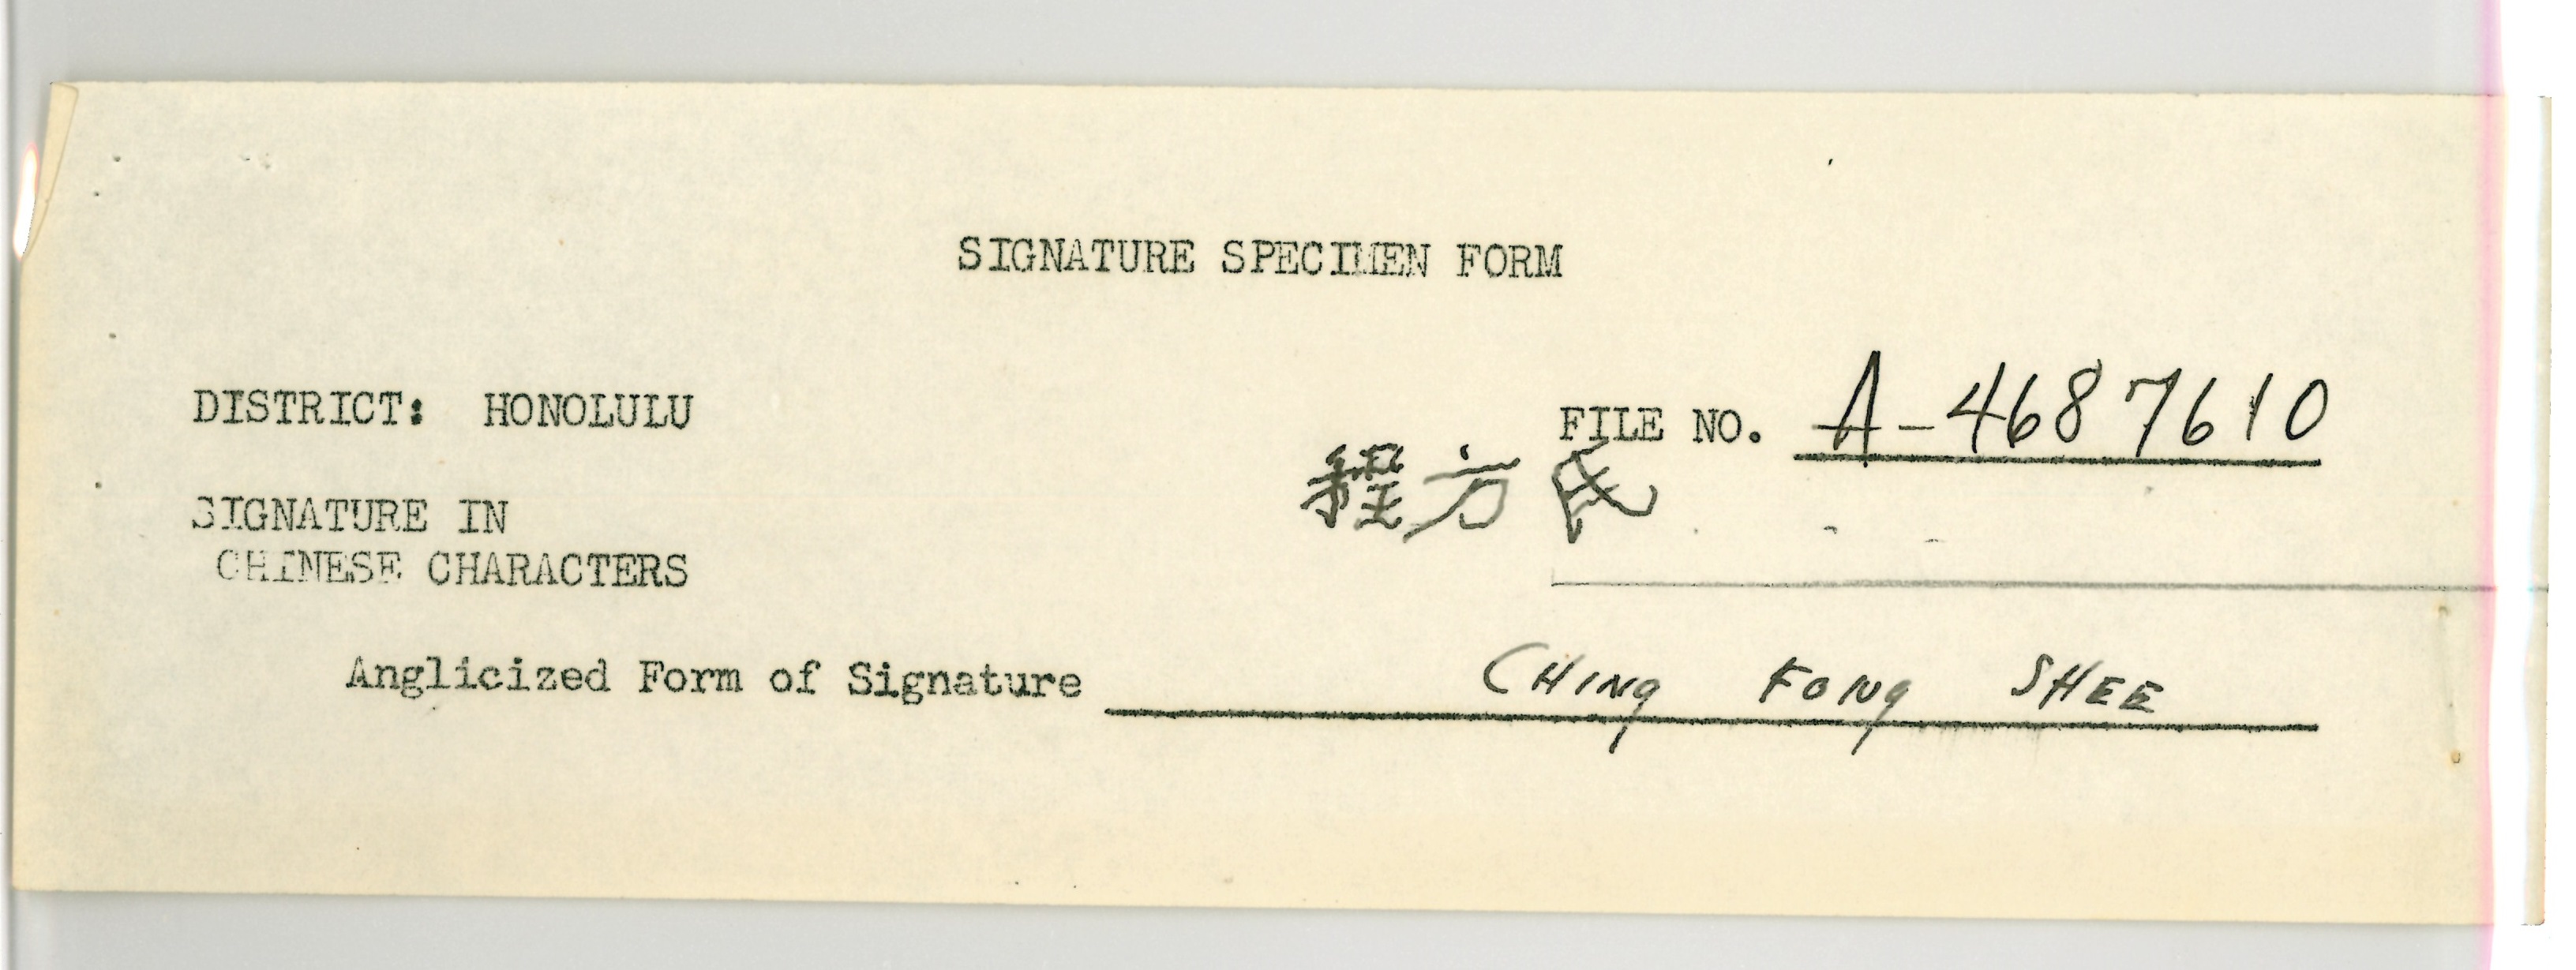 SIGNATURE SPECIMEN FORM
DISTRICT: HONOLULU
FILE NO. A-4687610
SIGNATURE IN
CHINESE CHARACTERS
程方氏
Anglicized Form of Signature CHING FONG SHEE